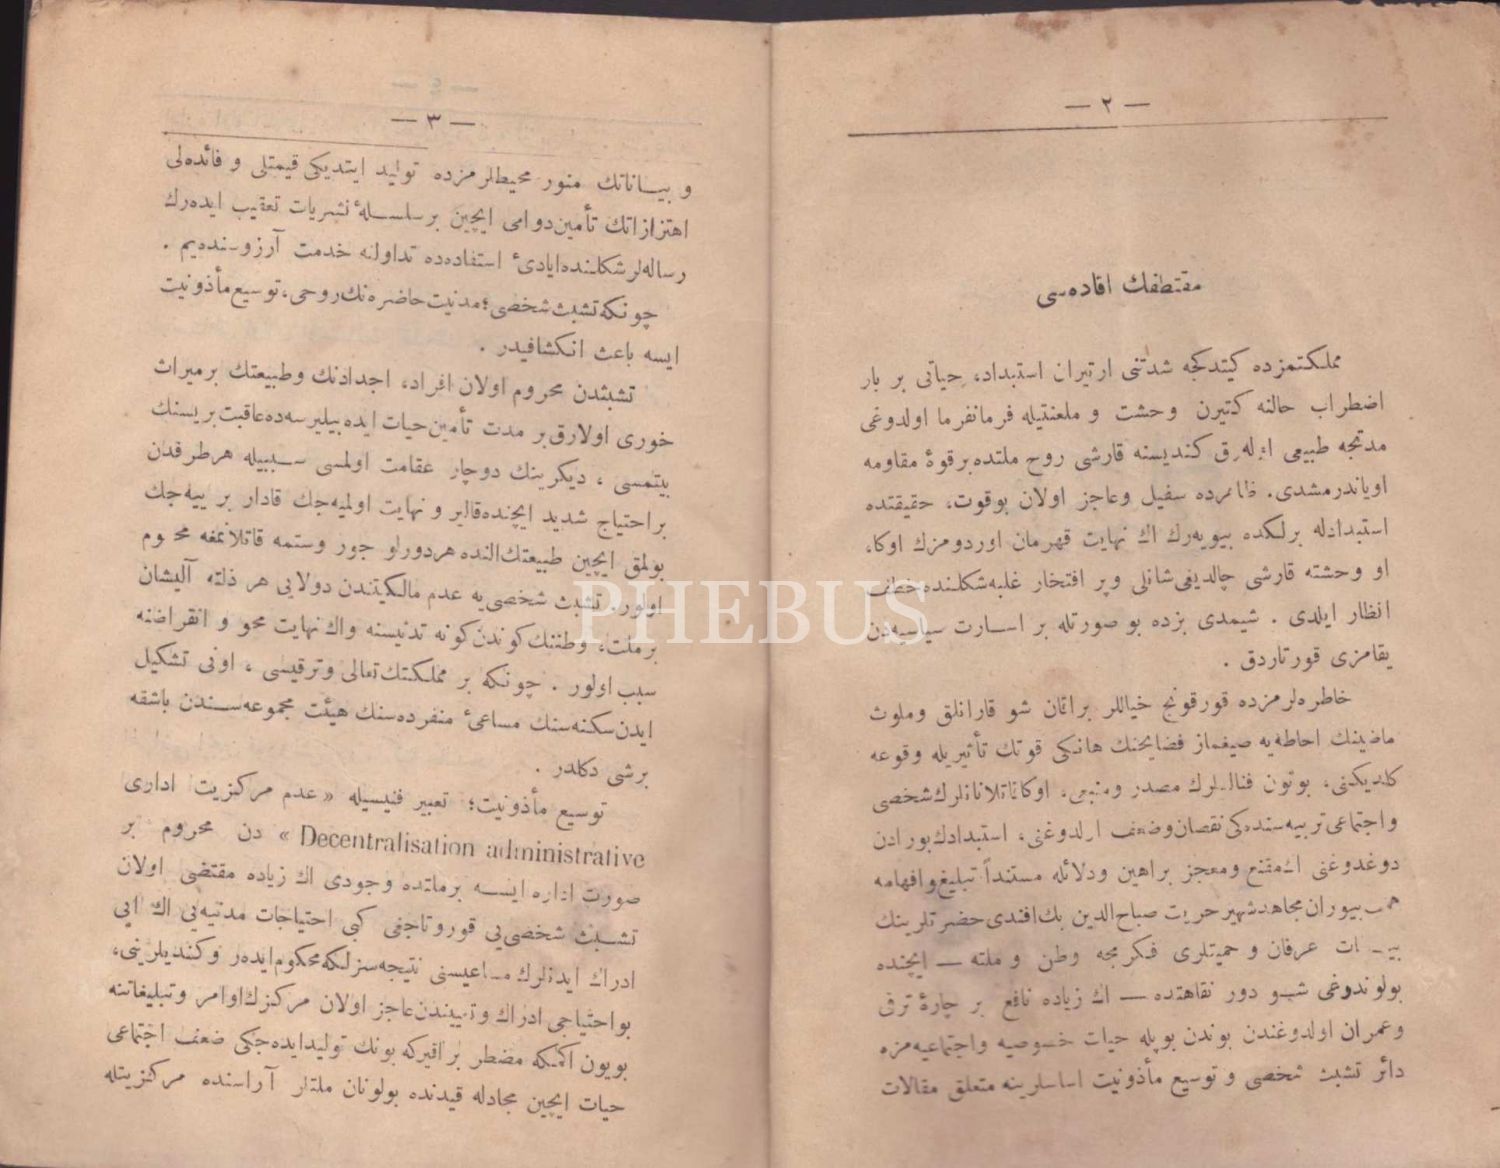 — ٢ —
مقتطفك افاده‌سی
مملكتمزده كيتدكجه شدتنی ارتيران استبداد، حياتی بر بار
اضطراب حالنه كتيرن وحشت و ملعنتيله فرمانفرما اولدوغی
مدتجه طبيعی اوله‌رق كنديسنه قارشی روح ملتده برقوهٔ مقاومه
اوياندرمشدی. ظاهرده سفيل وعاجز اولان بوقوت، حقيقتده
استبدادله برلكده بيويه‌رك اك نهايت قهرمان اوردومزك اوكا،
او وحشته قارشی چالديغی شانلی وپر افتخار غلبه شكلنده خطف
انظار ايلدی . شيمدی بزده بو صورتله بر اسارت سياسيه‌دن
يقامزی قورتاردق .
خاطره‌لرمزده قورقونج خياللر براقان شو قارانلق وملوث
ماضينك احاطه‌يه صيغماز فضايحنك هانكی قوتك تأثيريله وقوعه
كلديكنی، بوتون فنالقلرك مصدر ومنبعی، اوكا قاتلانانلرك شخصی
واجتماعی تربيه‌سنده‌كی نقصان وضعف اولدوغنی، استبدادك بورادن
دوغدوغنی اك مقنع ومعجز براهين ودلائله مستنداً تبليغ وافهامه
همت بيوران مجاهد شهير حريت صباح‌الدين بك افندی حضرتلرينك
ات عرفان و حميتلری فكرمجه وطن و ملته — ايچنده
بولوندوغی شو دور نقاهتده — اك زياده نافع بر چارهٔ ترقی
وعمران اولدوغندن بوندن بويله حيات خصوصيه واجتماعيه‌مزه
دائر تشبث شخصی و توسيع مأذونيت اساسلرينه متعلق مقالات
— ٣ —
و بياناتك منور محيطلرمزده توليد ايتديكی قيمتلی و فائده‌لی
اهتزازاتك تأمين دوامی ايچين بر سلسلهٔ نشريات تعقيب ايده‌رك
رساله‌لر شكلنده ايادیٔ استفاده‌ده تداولنه خدمت آرزوسنده‌يم .
چونكه تشبث شخصی؛ مدنيت حاضره‌نك روحی، توسيع مأذونيت
ايسه باعث انكشافيدر .
تشبثدن محروم اولان افراد، اجدادنك وطبيعتك برميراث
خوری اولارق بر مدت تأمين حيات ايده‌بيليرسه‌ده عاقبت بريسنك
بيتمسی ، ديكرينك دوچار عقامت اولمسی سببيله هرطرفدن
براحتياج شديد ايچنده قالير و نهايت اولميه‌جك قادار بر ييه‌جك
بولمق ايچين طبيعتك النده هردورلو جور وستمه قاتلانمغه محكوم
اولور. تشبث شخصی‌يه عدم مالكيتندن دولايی هر ذلته آليشان
برملت، وطننك كوندن كونه تدنيسنه واك نهايت محو و انقراضنه
سبب اولور . چونكه بر مملكتك تعالی وترقيسی ، اونی تشكيل
ايدن سكنه‌سنك مساعیٔ منفرده‌سنك هيئت مجموعه‌سندن باشقه
برشی دكلدر .
توسيع مأذونيت؛ تعبير فنيسيله « عدم مركزيت اداری
Decentralisation administrative » دن محروم بر
صورت اداره ايسه برملتده وجودی اك زياده مقتضی اولان
تشبث شخصی‌يی قوروتاجغی كبی احتياجات مدنيه‌يی اك ايی
ادراك ايدنلرك مساعيسنی نتيجه‌سزلكه محكوم ايدر وكنديلرينی،
بواحتياجی ادراك و تعييندن عاجز اولان مركزك اوامر وتبليغاتنه
بويون اكمكه مضطر براقيركه بونك توليد ايده‌جكی ضعف اجتماعی
حيات ايچين مجادله قيدنده بولونان ملتلر آراسنده مركزيتله
PHEBUS